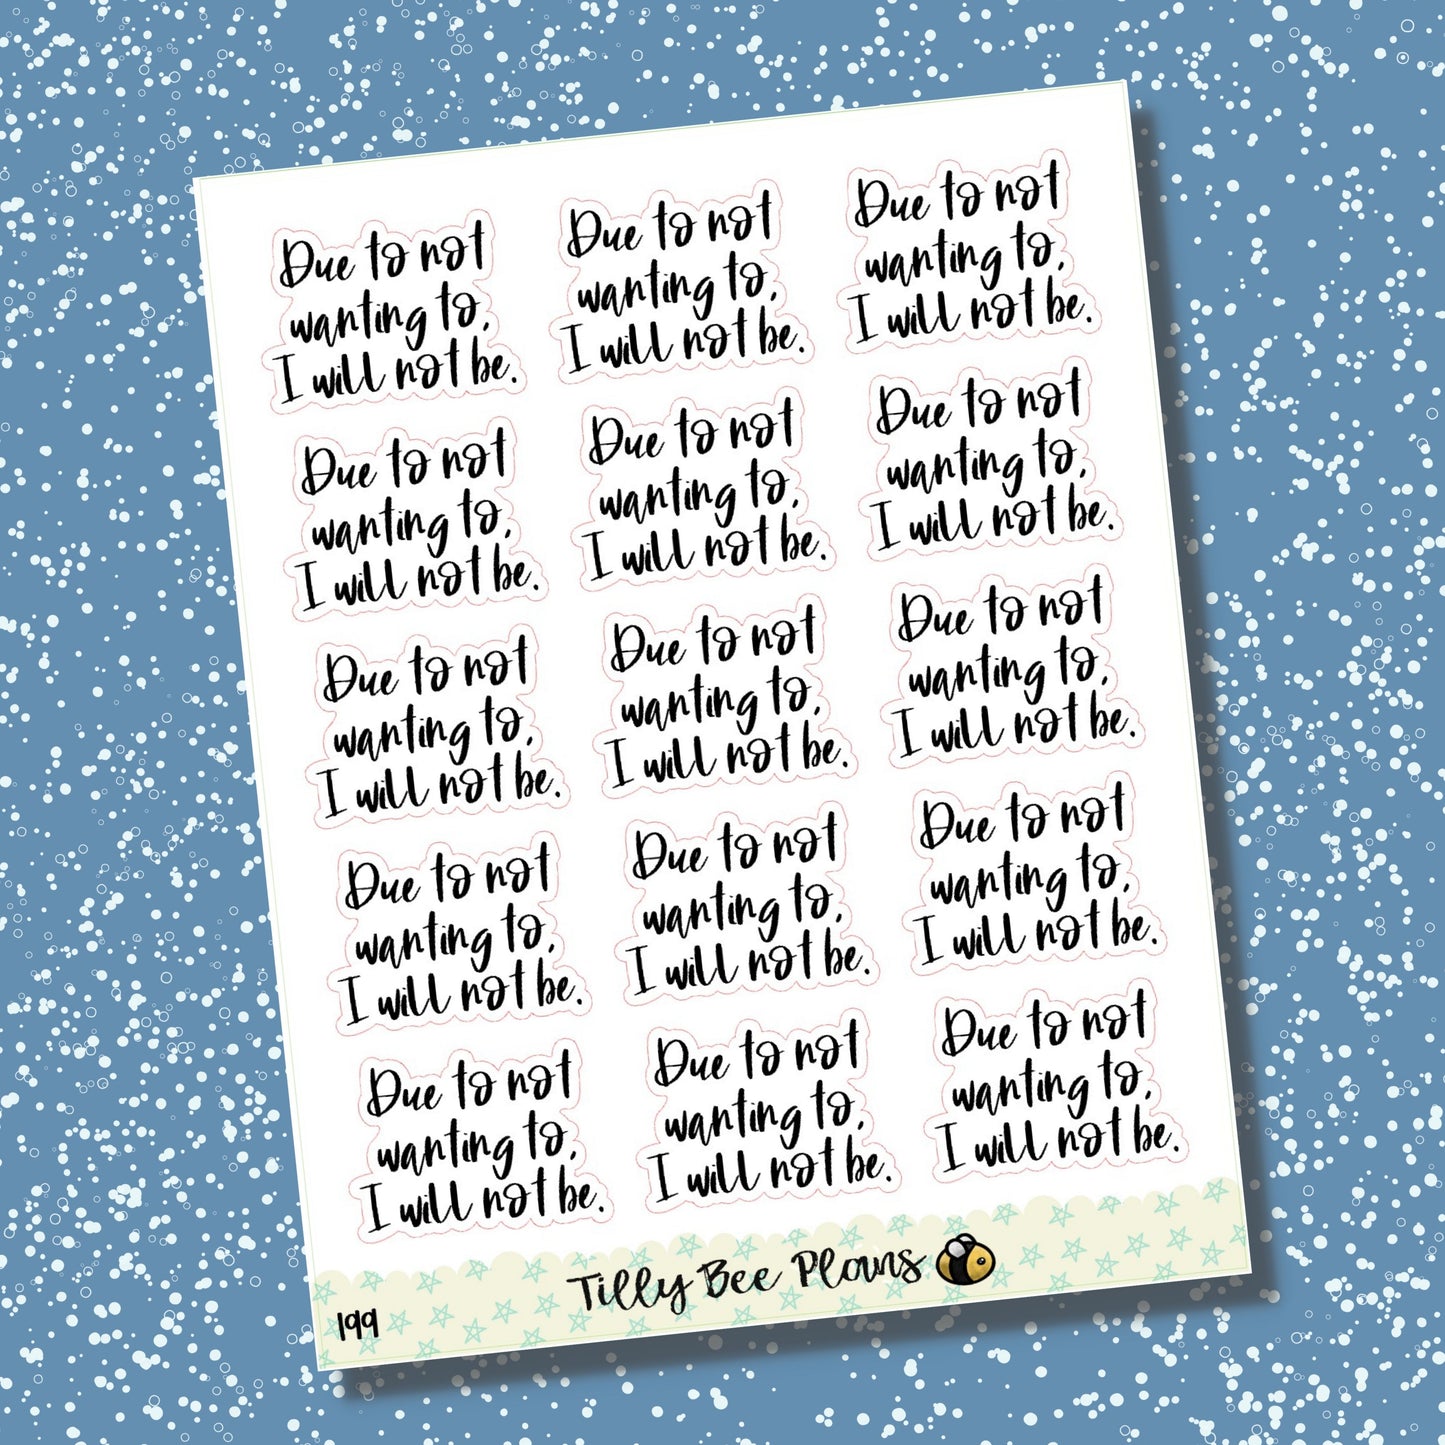 Due to not
wanting to,
I will not be.
Due to not
wanting to,
I will not be.
Due to not
wanting to,
I will not be.
Due to not
wanting to,
I will not be.
Due to not
wanting to,
I will not be.
Due to not
wanting to,
I will not be.
Due to not
wanting to,
I will not be.
Due to not
wanting to,
I will not be.
Due to not
wanting to,
I will not be.
Due to not
wanting to,
I will not be.
Due to not
wanting to,
I will not be.
Due to not
wanting to,
I will not be.
Due to not
wanting to,
I will not be.
Due to not
wanting to,
I will not be.
Due to not
wanting to,
I will not be.
199
Tilly Bee Plans